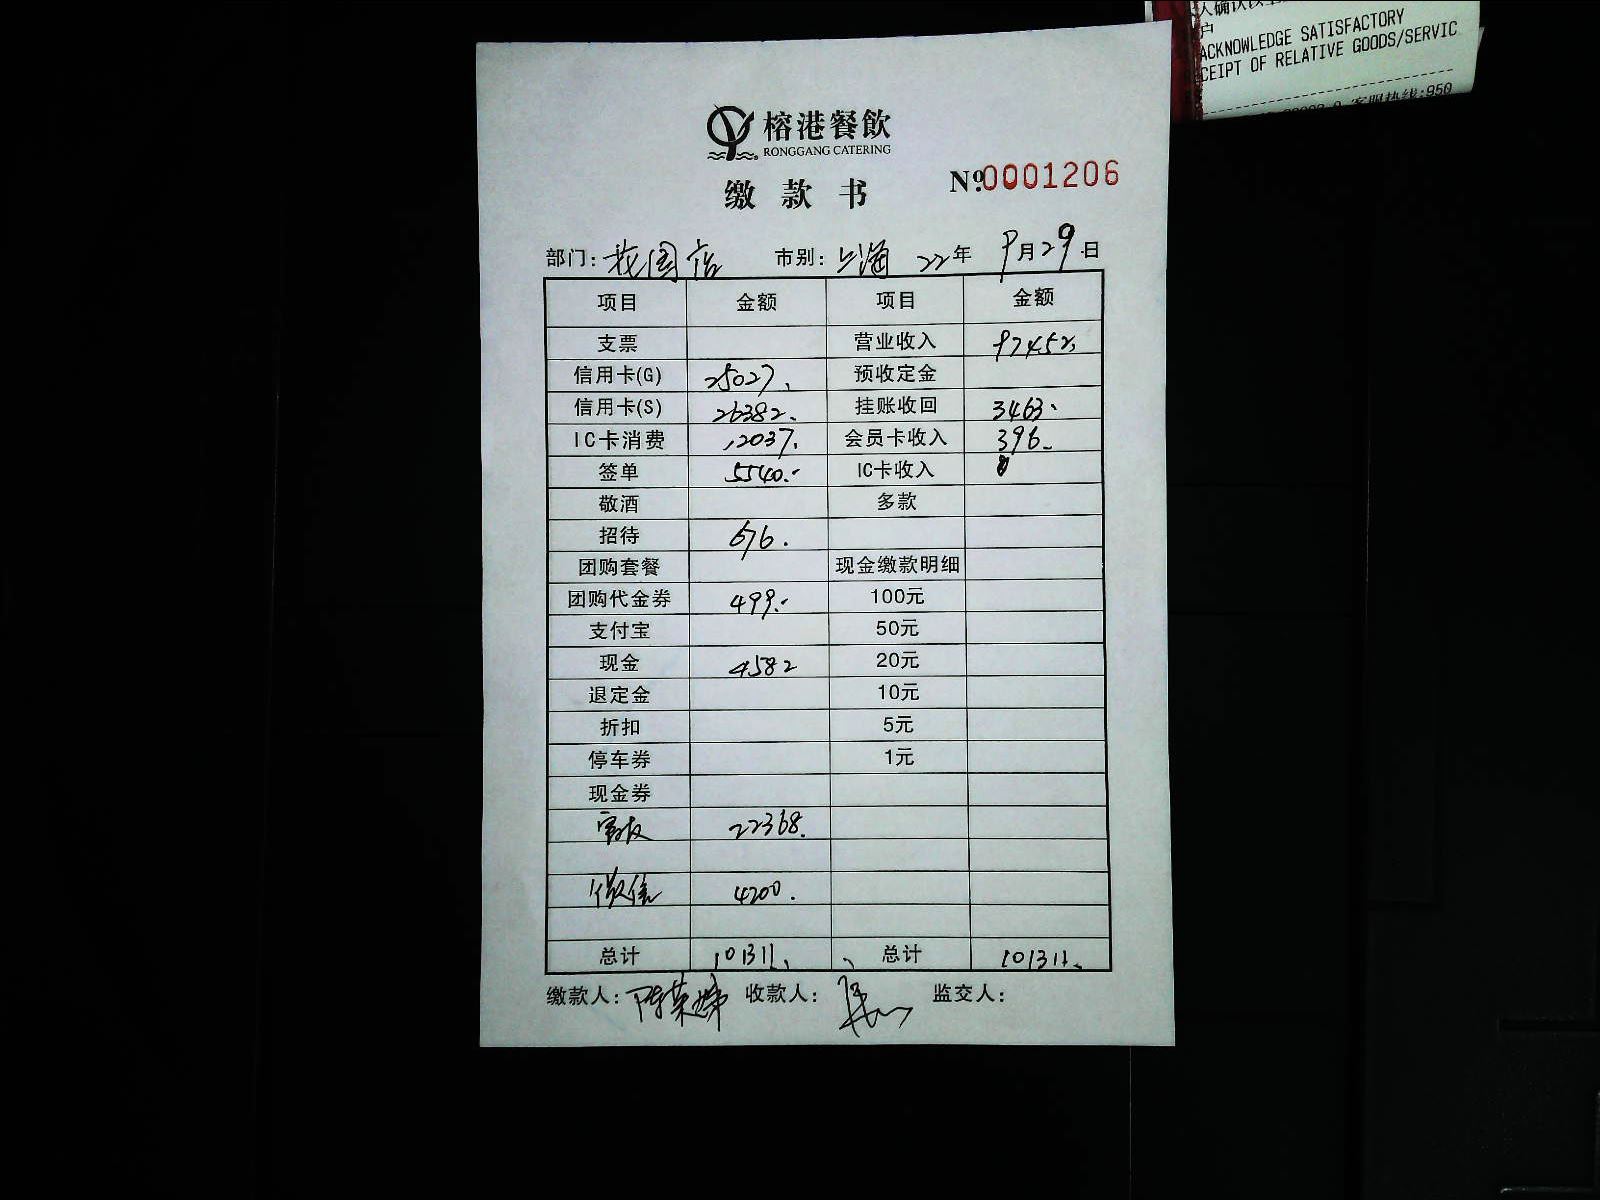 人确认以上
户
ACKNOWLEDGE SATISFACTORY
CEIPT OF RELATIVE GOODS/SERVIC
客服热线:950
榕港餐飲
RONGGANG CATERING
缴款书 №0001206
部门: 花园店 市别: 上海 22年 9月29日
项目 金额 项目 金额
支票 营业收入 97452
信用卡(G) 25027 预收定金
信用卡(S) 26382 挂账收回 3463
IC卡消费 12037 会员卡收入 396
签单 5540 IC卡收入
敬酒 多款
招待 676
团购套餐 现金缴款明细
团购代金券 499 100元
支付宝 50元
现金 4582 20元
退定金 10元
折扣 5元
停车券 1元
现金券
22368
微信 4200
总计 101311 总计 101311
缴款人: 收款人: 监交人: